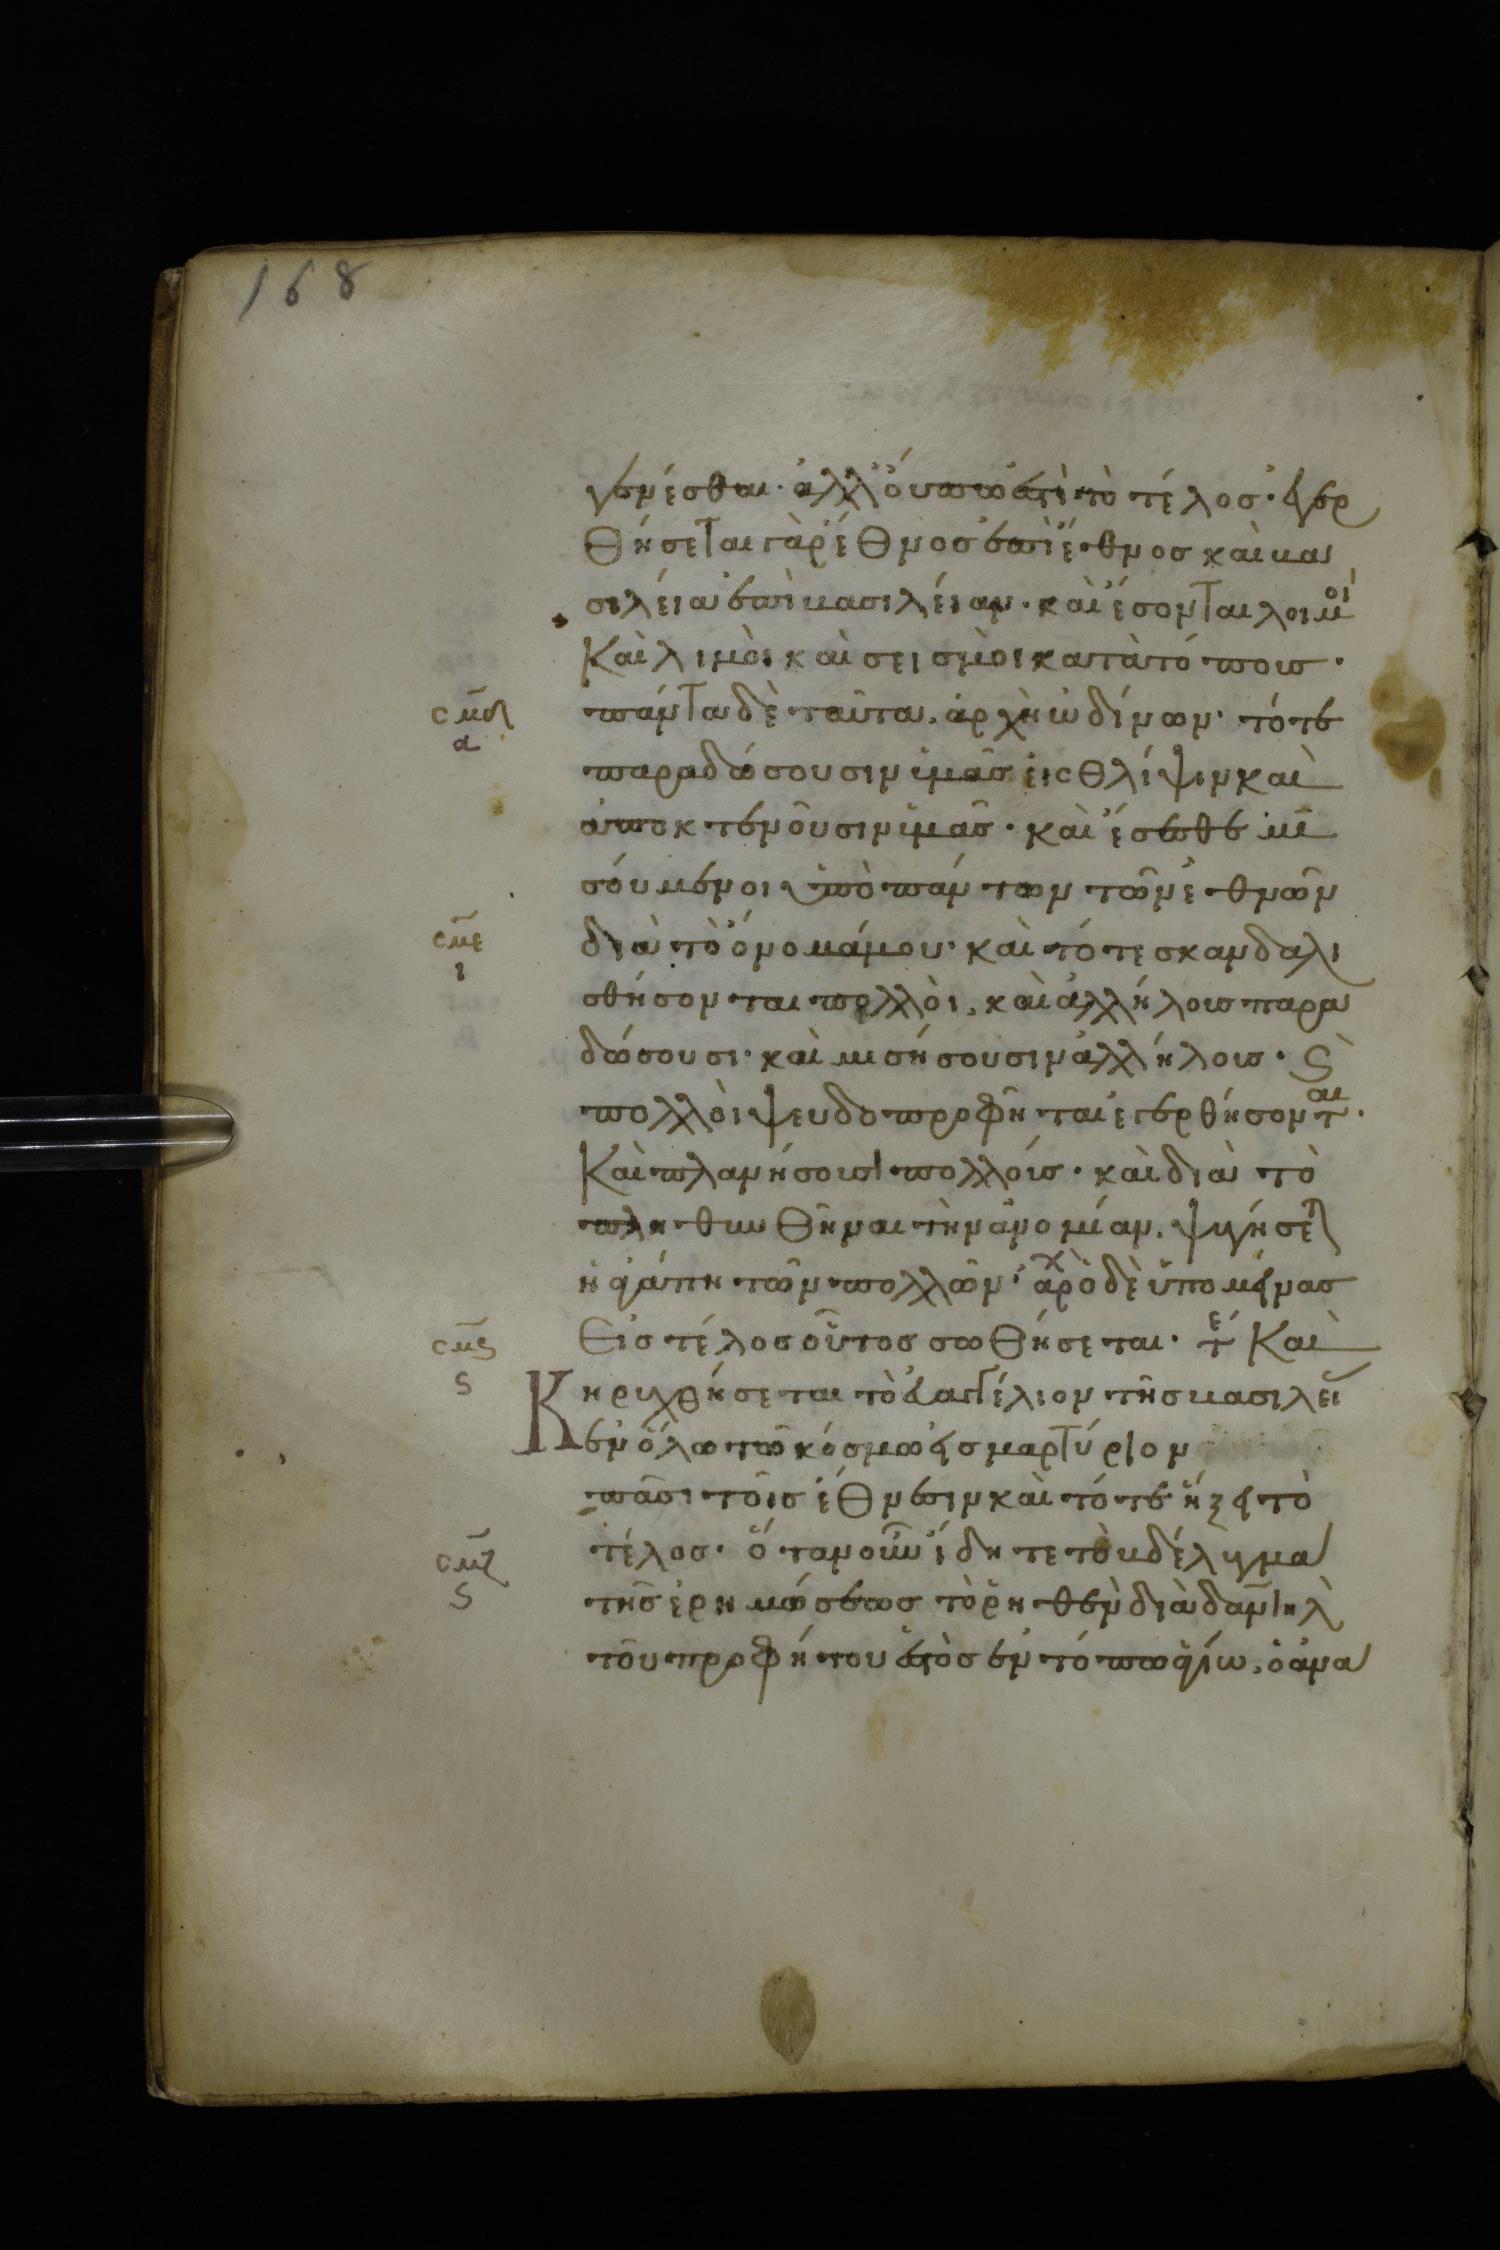 168
γενέσθαι· ἀλλ' ὀύπω ἐστὶ τὸ τέλος· ἐγερ
θήσεται γὰρ ἔθνος ἐπὶ ἔθνος καὶ βα
σιλέια ἐπὶ βασιλέιαν· καὶ ἔσονται λοιμοί
Καὶ λιμὸι καὶ σεισμὸι κατὰ τόπους·
σμδ πάντα δὲ ταῦτα, ἀρχὴ ὠδίνων· τότε
α παραδώσουσιν ἱμᾶς ἐις θλίψιν καὶ
ἀποκτενοῦσιν ἱμᾶς· καὶ ἔσεσθε μι
σόυμενοι ὑπὸ πάντων τῶν ἐθνῶν
σμε διὰ τὸ ὄνομάμου· καὶ τότε σκανδαλι
ι σθήσονται πολλὸι, καὶ ἀλλήλους παρα
δώσουσι· καὶ μισήσουσιν ἀλλήλους· ϛ
πολλὸι ψευδοπροφῆται ἐγερθήσονται·
Καὶ πλανήσουσι πολλόις· καὶ διὰ τὸ
πληθυνθῆναι τὴν ἀνομίαν, ψυγήσετ
ἡ ἀγάπη τῶν πολλῶν· ἀρχ ὁ δὲ ὑπομείνας
σμϛ Εἰς τέλος οὗτος σωθήσεται· τέ Καὶ
ϛ Κηρυχθήσεται τὸ ἐυαγγέλιον τῆς βασιλεί
ἐν ὅλω τῶ κόσμω εἰς μαρτύριον
πᾶσι τοῖς ἔθνεσιν καὶ τότε ἥξει τὸ
σμζ τέλος· ὅταν οὖν ἴδητε τὸ βδέλυγμα
ϛ τῆς ἐρημώσεως τὸ ῥηθὲν διὰ δανιὴλ
τοῦ προφήτου ἑστὸς ἐν τόπω ἁγίω, ὁ ἀνα